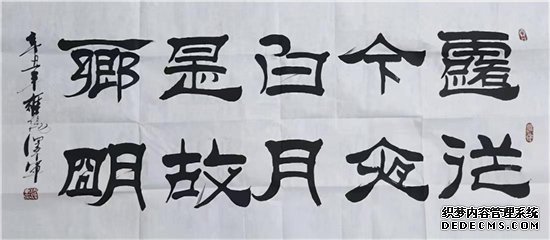 露從
今夜
白月
是故
鄉明
辛丑年
织梦内容管理系统
DEDECMS.COM